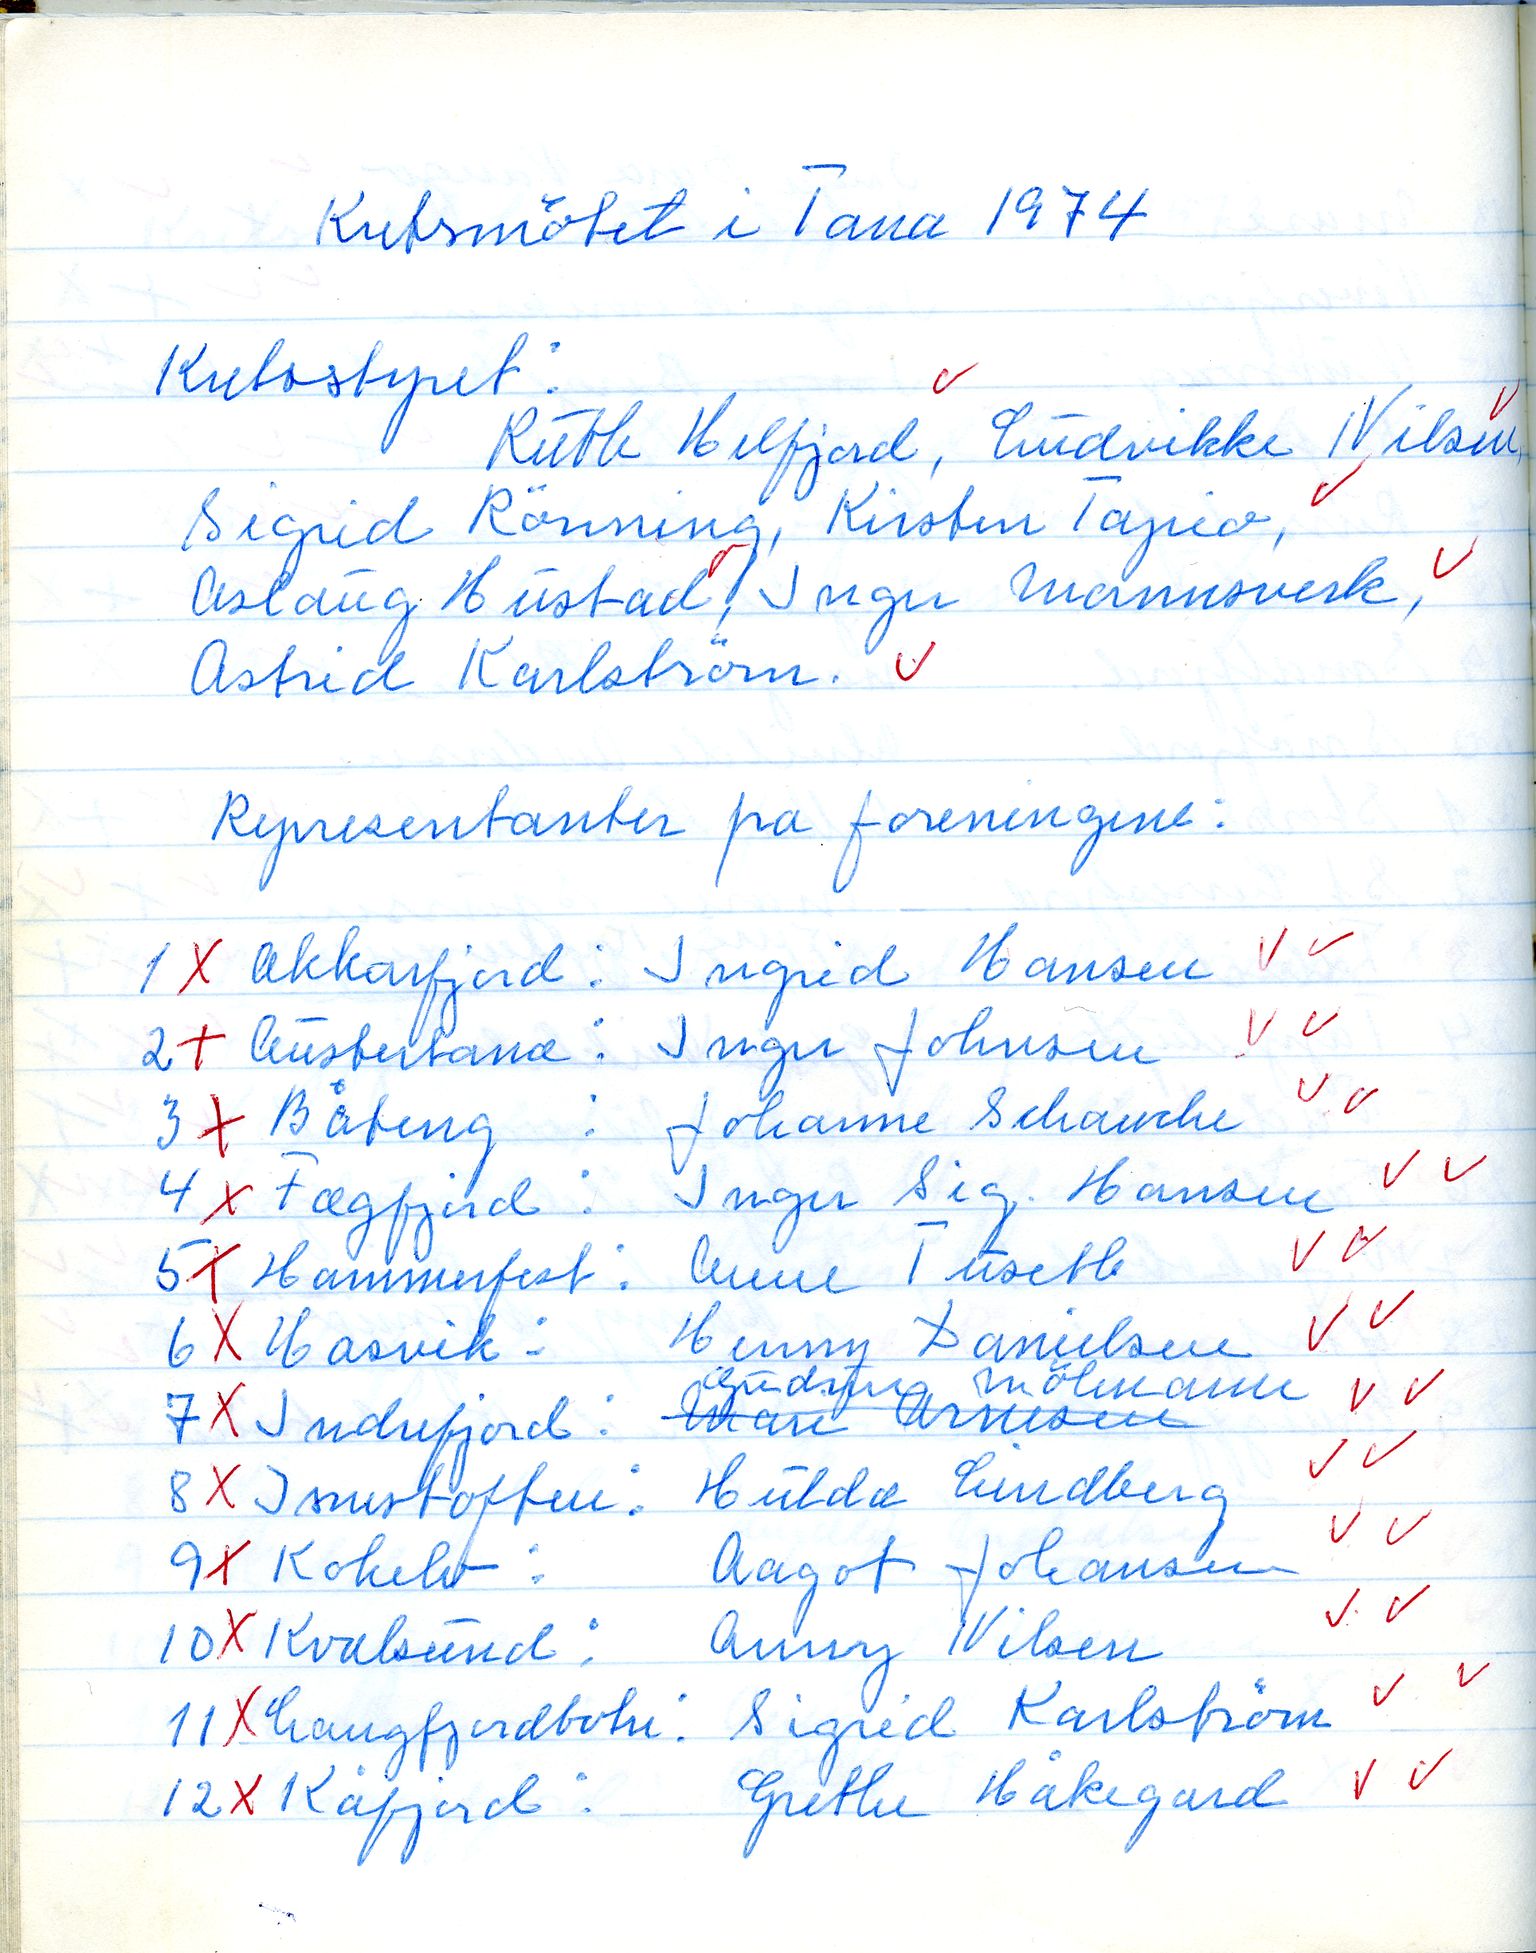 Kretsmötet i Tana 1974
Kretsstyret:
Ruth Helfjord, Ludvikke Nilsen,
Sigrid Rönning, Kirsten Tapio,
Aslaug Hustad, Inger Mannsverk,
Astrid Karlström.
Representanter pa foreningene:
1 X Akkarfjord: Ingrid Hansen
2 + Austertana: Inger Johnsen
3 + Båteng : Johanne Schanche
4 x Fægfjord: Inger Sig. Hansen
5 + Hammerfest: Anne Tuseth
6 X Hasvik: Henny Danielsen
Gudrun Mölmann
7 X Indrefjord: Mari Arnesen
8 X Isnestoften: Hulda Lindberg
9 X Kokelv: Aagot Johansen
10 X Kvalsund: Anny Nilsen
11 X Langfjordbotn: Sigrid Karlström
12 X Kåfjord: Grethe Håkegard